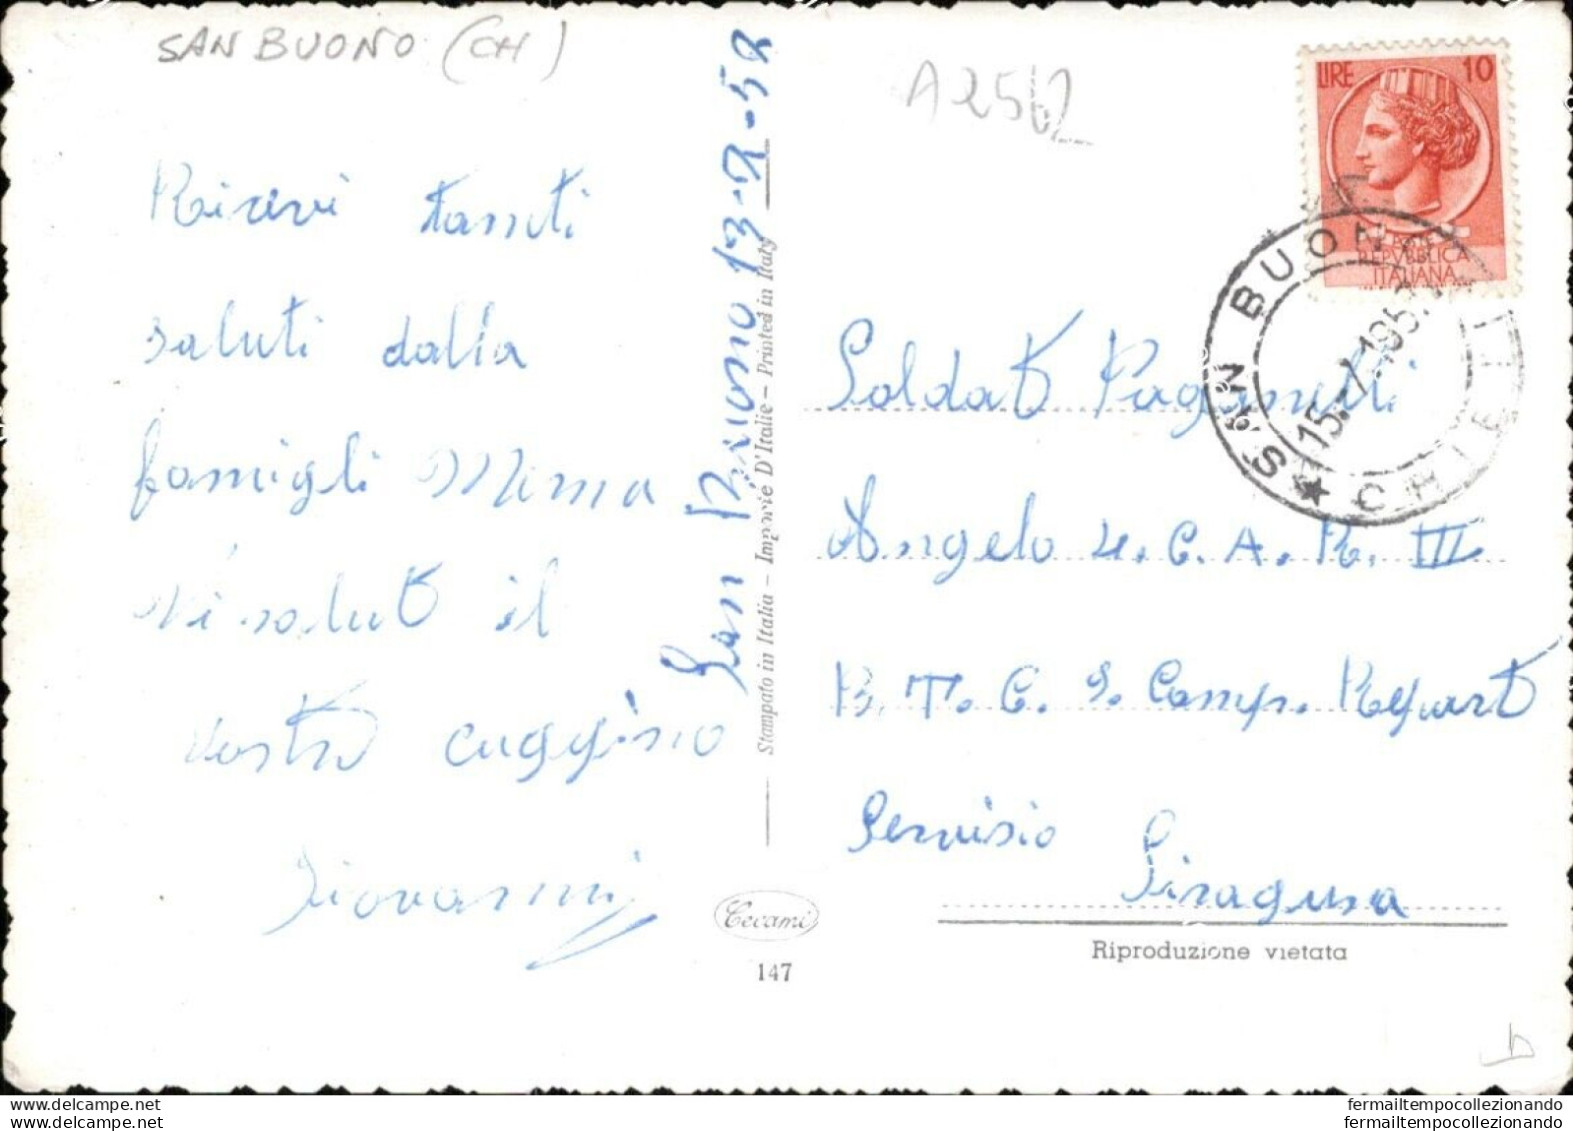 SAN BUONO (CH)
A2562
Ricevi tanti
saluti dalla
famigli Mima
Vi salut il
vostro cuggino
Giovanni
San Buono 13-7-58
Stampato in Italia – Importé D'Italie – Printed in Italy
Cecami
147
LIRE 10
REPVBBLICA
ITALIANA
SAN BUONO
CHIETI
15.7.195
Soldato Paganelli
Angelo 4. C. A. R. III
B. T. C. S. Comp. Repart
Servisio
Siragusa
Riproduzione vietata
fermailtempocollezionando
fermailtempocollezionando
fermailtempocollezionando
fermailtempocollezionando